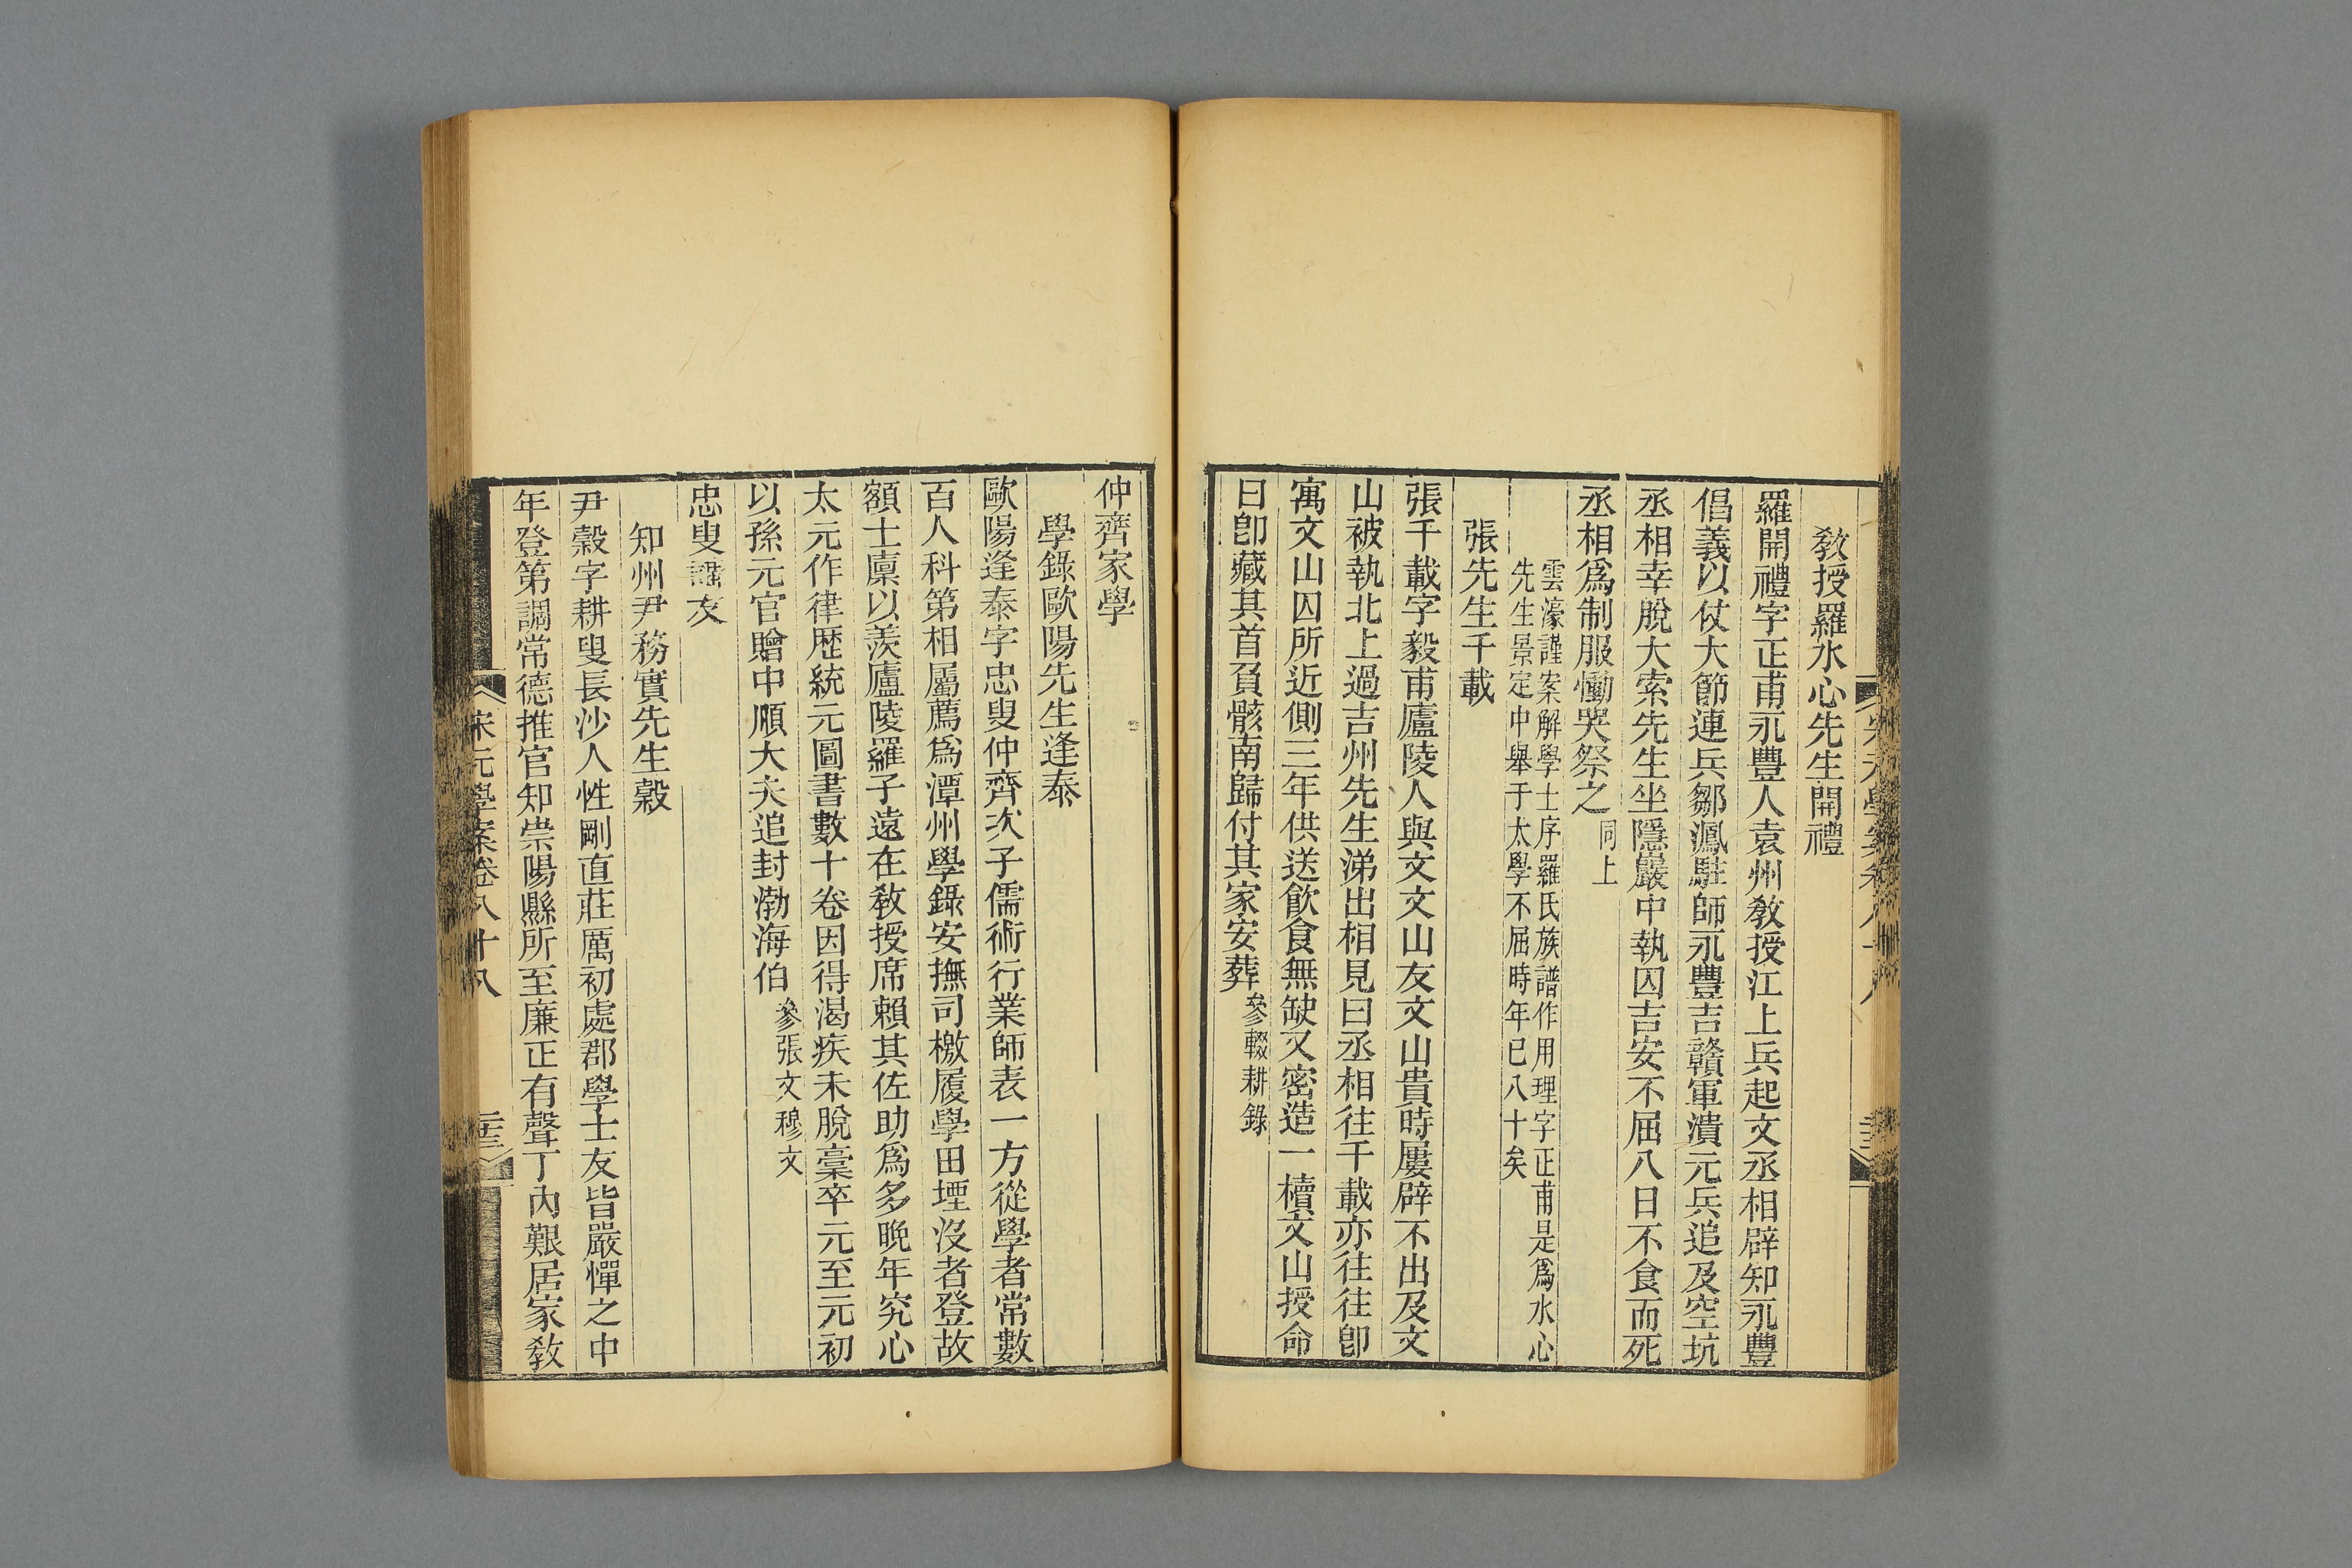 教授羅水心先生開禮
羅開禮字正甫永豐人袁州教授江上兵起文丞相辟知永豐
倡義以仗大節連兵鄒㵯駐師永豐吉贛軍潰元兵追及空坑
丞相幸脫大索先生坐隱巖中執囚吉安不屈八日不食而死
丞相爲制服慟哭祭之同上
雲濠謹案解學士序羅氏族譜作用理字正甫是爲水心
先生景定中舉于太學不屈時年已八十矣
張先生千載
張千載字毅甫廬陵人與文文山友文山貴時屢辟不出及文
山被執北上過吉州先生涕出相見曰丞相往千載亦往往卽
寓文山囚所近側三年供送飲食無缺又密造一櫝文山授命
日卽藏其首負骸南歸付其家安葬參輟耕錄
仲齊家學
學錄歐陽先生逢泰
歐陽逢泰字忠叟仲齊次子儒術行業師表一方從學者常數
百人科第相屬薦爲潭州學錄安撫司檄履學田堙沒者登故
額士廩以羨廬陵羅子遠在教授席賴其佐助爲多晚年究心
太元作律歷統元圖書數十卷因得渴疾未脫稾卒元至元初
以孫元官贈中順大夫追封渤海伯參張文穆文
忠叟講友
知州尹務實先生穀
尹穀字耕叟長沙人性剛直莊厲初處郡學士友皆嚴憚之中
年登第調常德推官知崇陽縣所至廉正有聲丁內艱居家教
宋元學案卷八十八